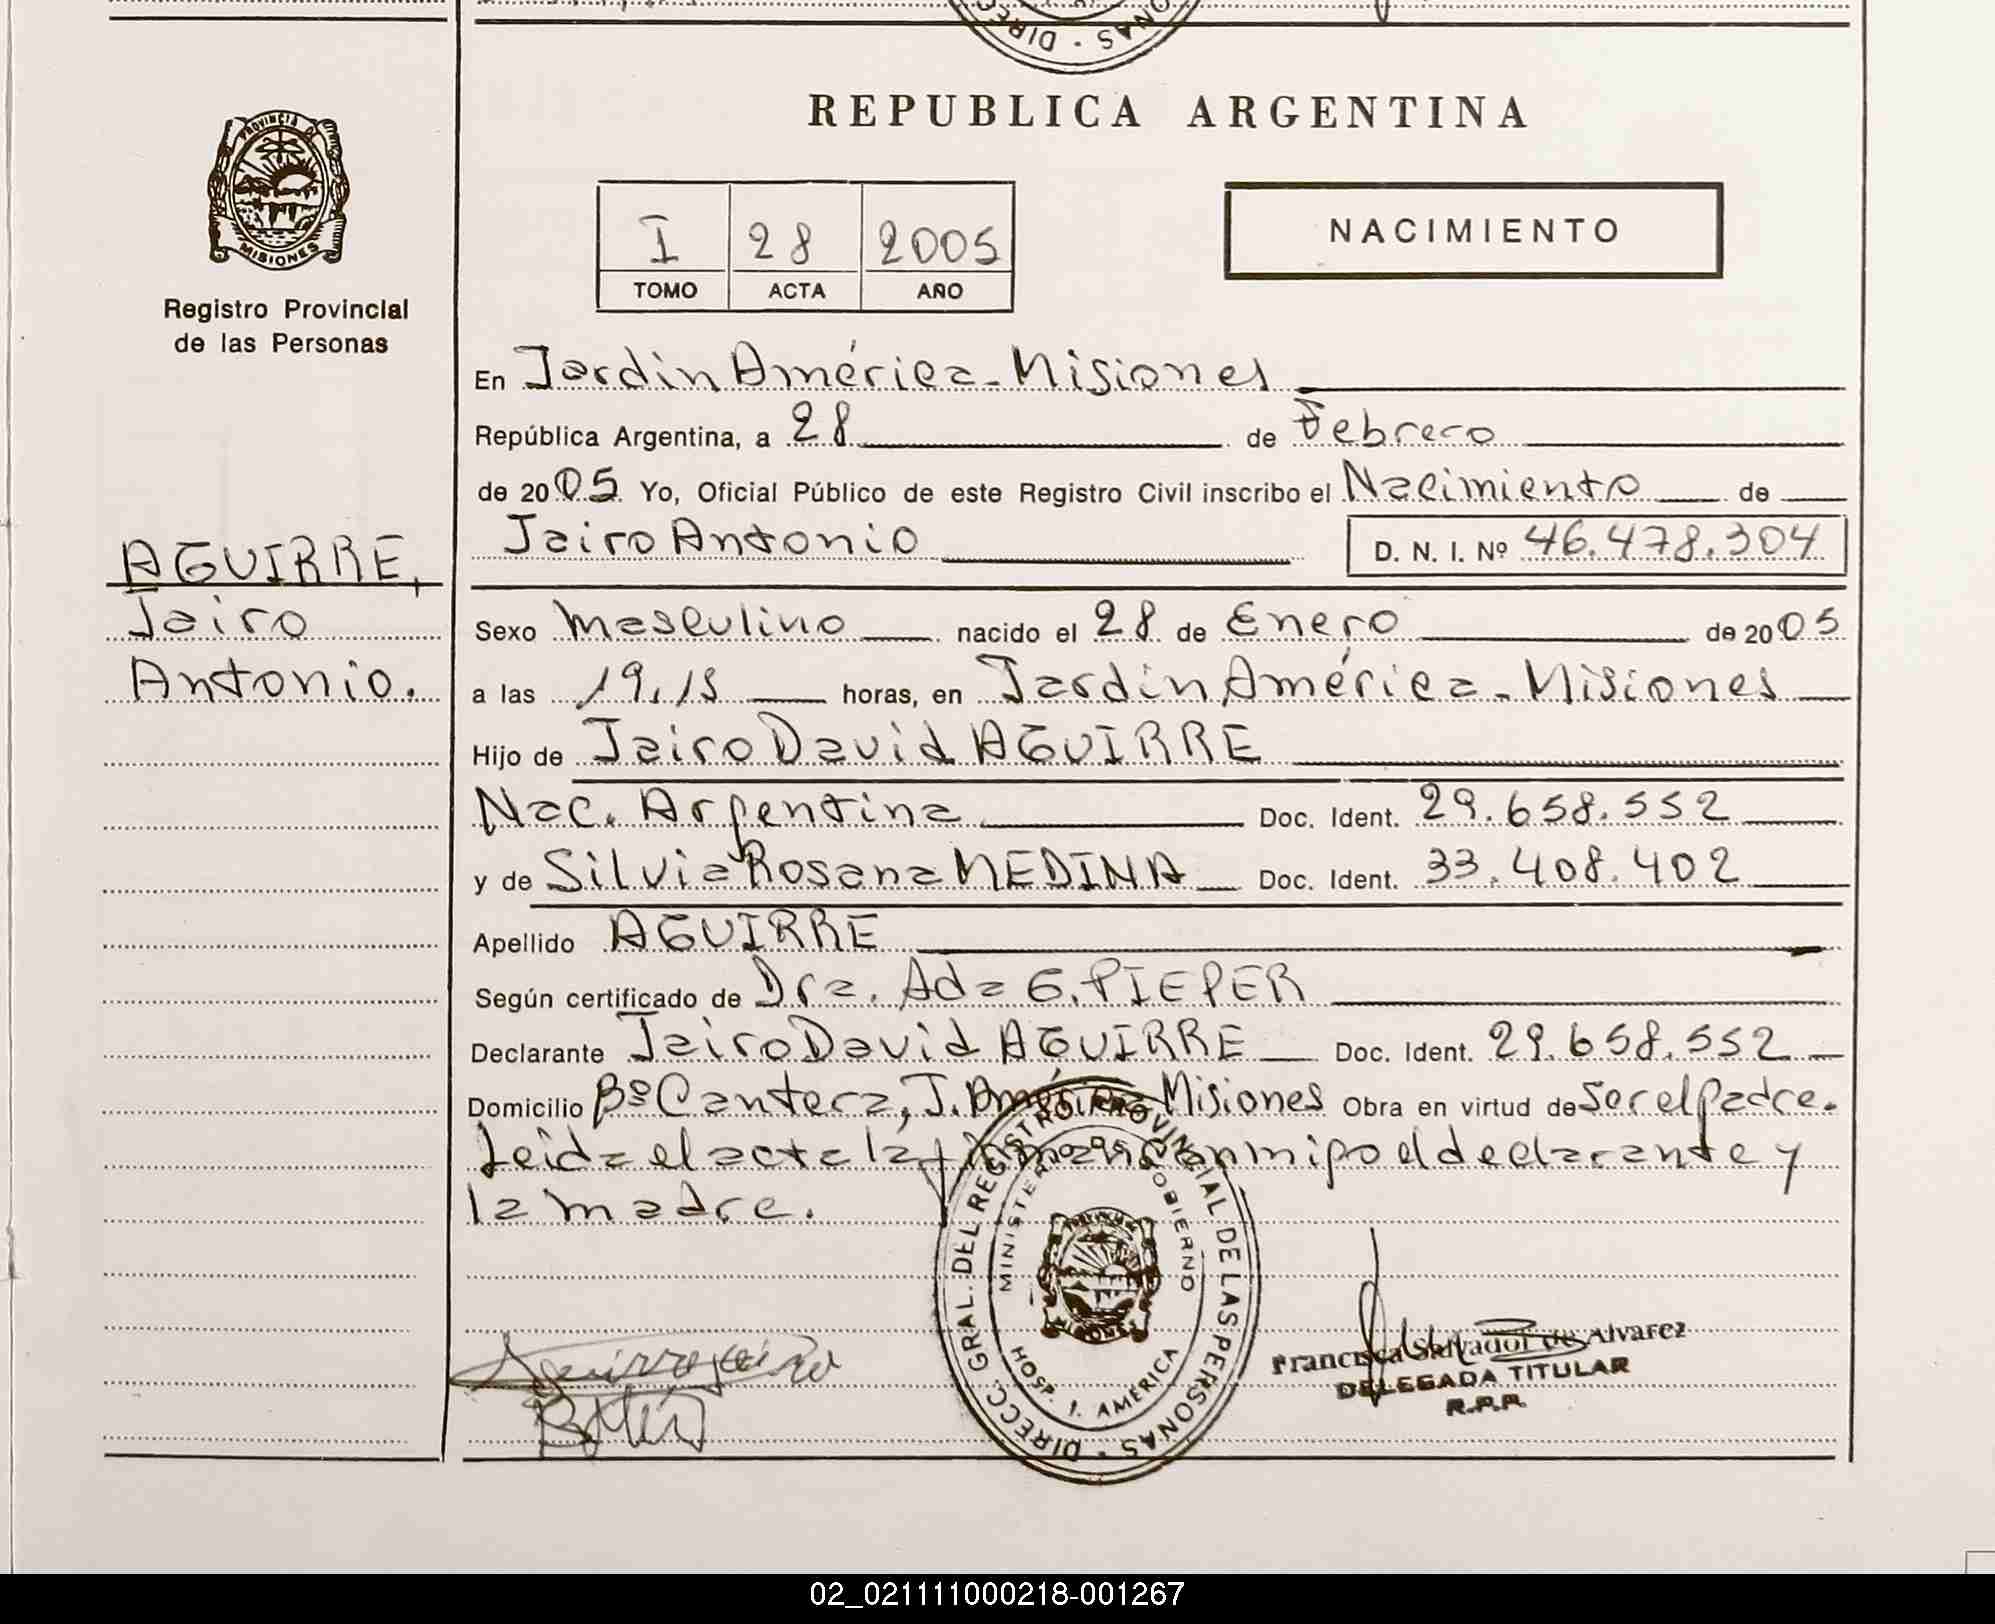 REPUBLICA ARGENTINA
PROVINCIA D
MISIONES
Registro Provincial
de las Personas
I 28 2005
TOMO ACTA AÑO
NACIMIENTO
En Jardin América - Misiones
República Argentina, a 28 de Febrero
de 2005 Yo, Oficial Público de este Registro Civil inscribo el Nacimiento de
Jairo Antonio D. N. I. Nº 46.478.304
AGUIRRE,
Jairo
Antonio.
Sexo Masculino nacido el 28 de Enero de 2005
a las 19,15 horas, en Jardin América - Misiones
Hijo de Jairo David AGUIRRE
Nac. Argentina Doc. Ident. 29.658.552
y de Silvia Rosana MEDINA Doc. Ident. 33.408.402
Apellido AGUIRRE
Según certificado de Dra. Ada G. PIEPER
Declarante Jairo David AGUIRRE Doc. Ident. 29.658.552
Domicilio Bº Cantera, J. América Misiones Obra en virtud de Ser el Padre.
Leida el acta la firman conmigo el declarante y
la madre.
DIRECC. GRAL. DEL REGISTRO PROVINCIAL DE LAS PERSONAS
MINISTERIO DE GOBIERNO
HOSP. J. AMERICA
MISIONES
Aguirre Jairo
Francisca Salvador de Alvarez
DELEGADA TITULAR
R.P.P.
02_021111000218-001267